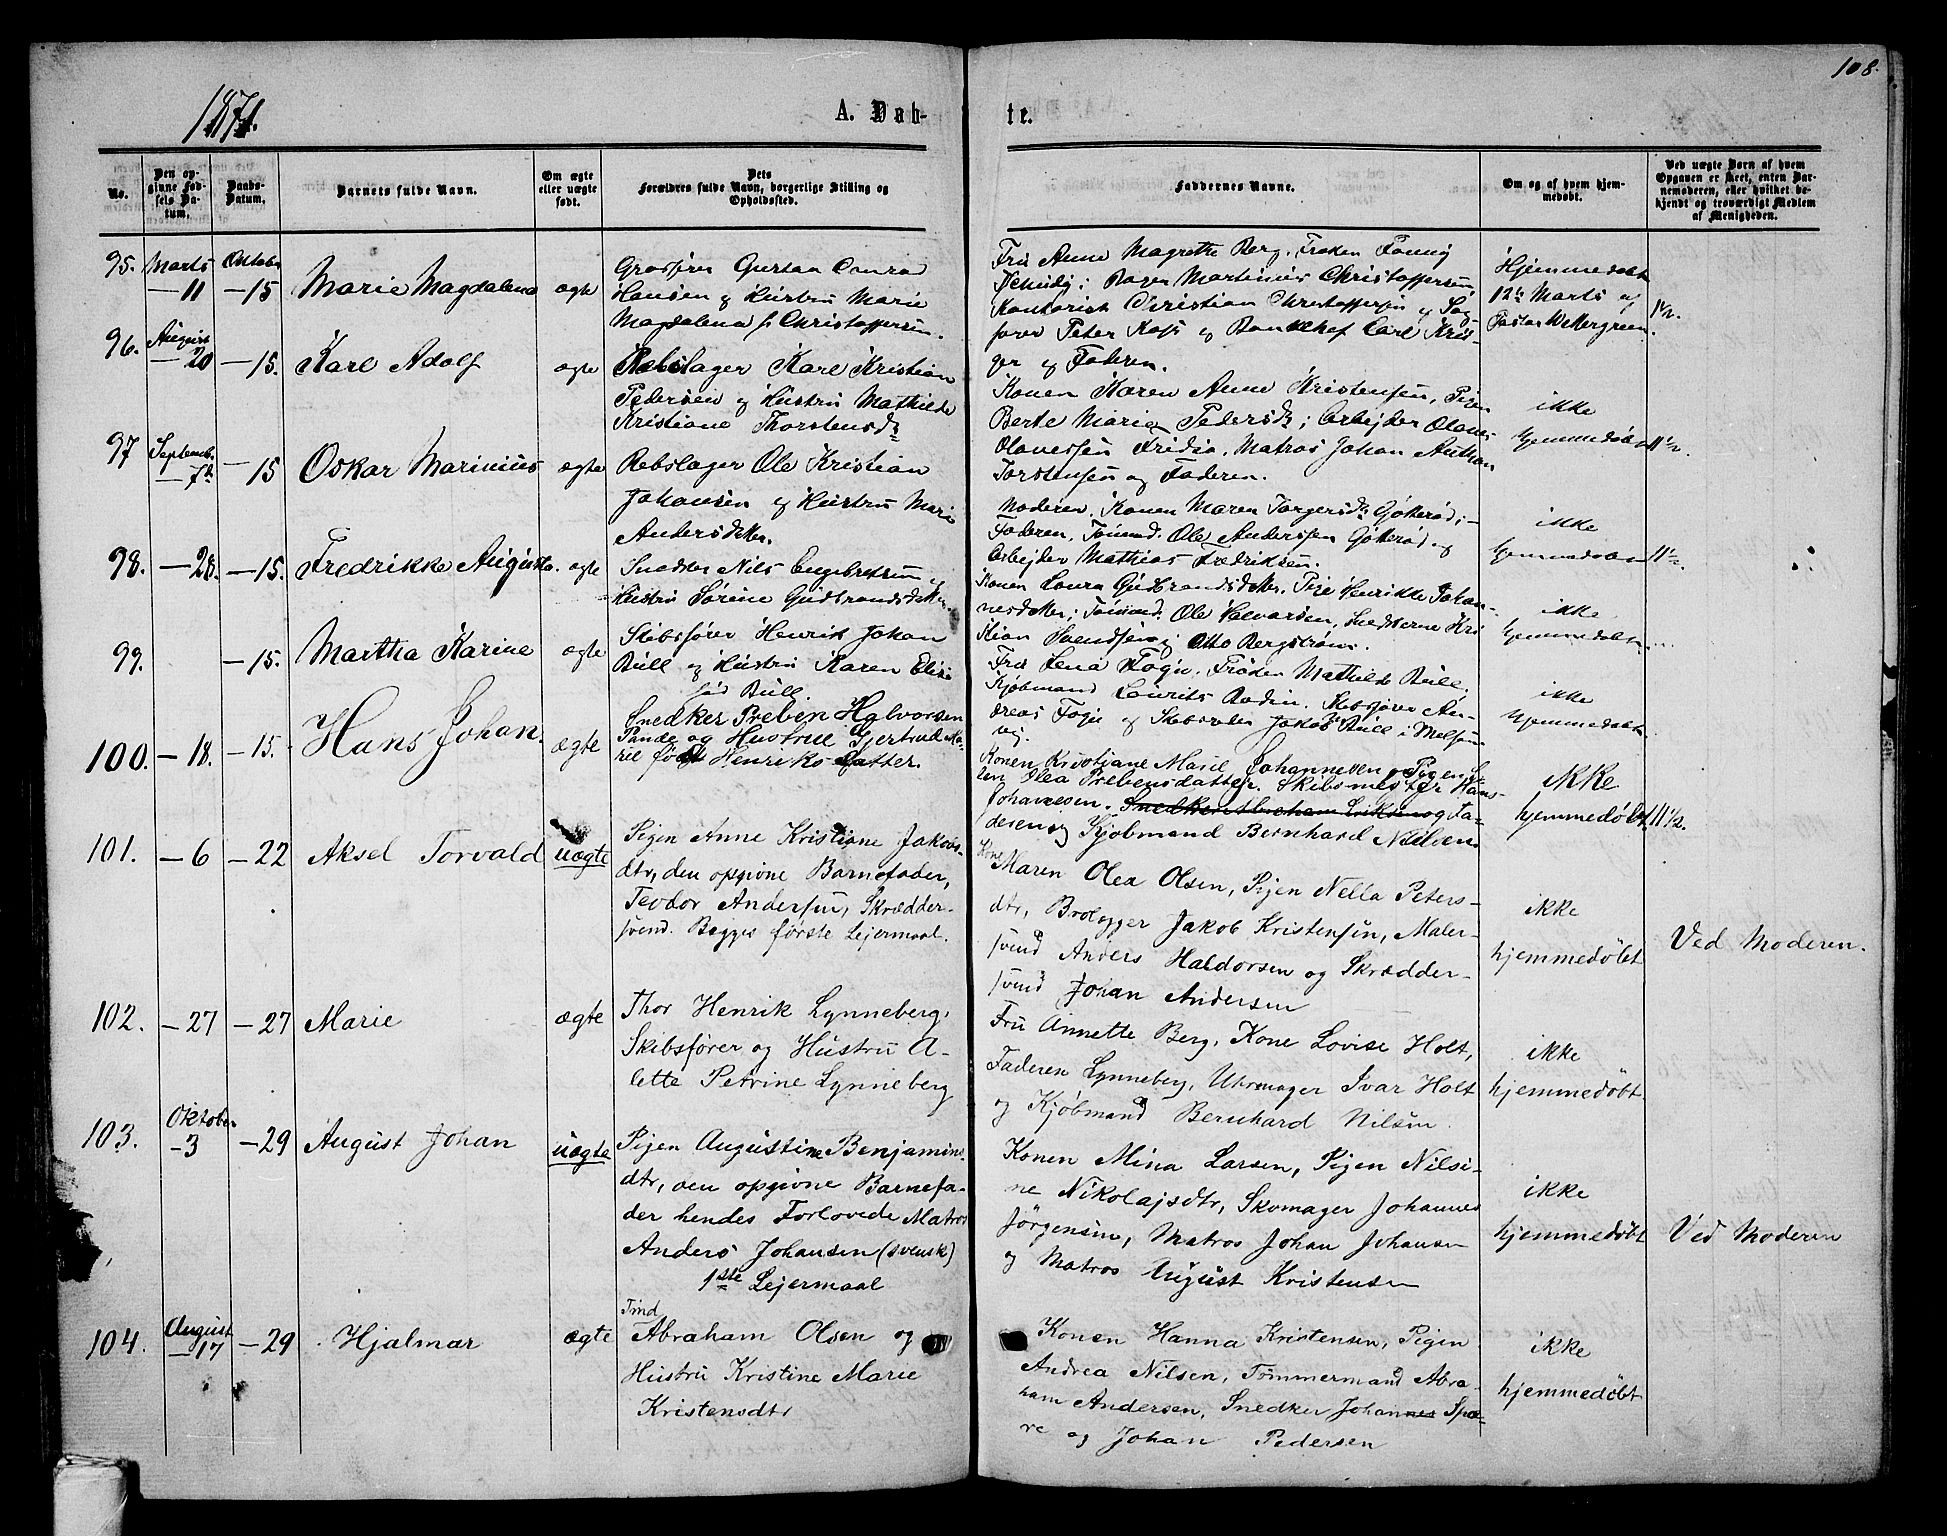 108.
1871.
A. Døb-
te.
No.
Den op-
givne Fød-
sels Da-
tum.
Daabs-
Datum.
Barnets fulde Navn.
Om ægte
eller uægte
født.
Dets
Forældres fulde Navn, borgerlige Stilling og
Opholdssted.
Faddernes Navne.
Om og af hvem hjem-
medøbt.
Ved uægte Børn af hvem
Opgaven er skeet, enten Bar-
nemoderen, eller hvilket be-
kjendt og troværdigt Medlem
af Menigheden.
95. Marts
— 11
Oktober
— 15
Marie Magdalena
ægte
Hansen og Hustru Marie
Magdalena f. Christoffersen.
Fru Anne Magrethe Berg, Frøken Fanny
Martinius Christoffersen,
Kontorist Christian Christoffersen og
fører Peter og Carl Kris-
ger og Faderen.
Hjemmedøbt
12te Marts af
Pastor Wettergreen.
1½.
96. August
— 20
— 15.
Karl Adolf
ægte
Rebslager Karl Kristian
Pedersen og Hustru Mathilde
Kristiane Thorstensd.
Konen Karen Anne Kristensen, Pigen
Berte Marie Pedersd.; Arbejder Olaves
Olavessen Matros Johan Anthon
Torstensen og Faderen.
ikke
hjemmedøbt
11½.
97 Septemb.
— 7de
— 15
Oskar Marinius
ægte
Rebslager Ole Kristian
Johansen og Hustru Marie
Andersdtter.
Moderen, Konen Maren Torgersd. Gøtterød;
Faderen, Tømmd. Ole Anderssen Gøtterød og
Arbejder Mathias Fredriksen.
ikke
hjemmedøbt
11½.
98. — 28.
— 15.
Fredrikke Augusta.
ægte
Snedker Nils Engebretsen og
Hustru Sørine Gudbrandsdatter.
Konen Laura Gudbrandsdatter, Pige Henrikke Johan-
nesdatter; Tømmd. Ole Halvorsen, Snedkerne Kri
stian Svendsen og Otto Bergstrøm.
ikke
hjemmedøbt
99.
— 15.
Martha Karine
ægte
Skibsfører Henrik Johan
Bull og Hustru Karen Elise
fød Bull.
Fru Lena Fogn, Frøken Mathilde Bull.
Kjøbmand Laurits Bodin, Skibsfører An-
dreas Fogn og Skibsreder Jakob Bull i Melsom-
vig.
ikke
hjemmedøbt
100. — 18.
— 15.
Hans Johan.
ægte
Snedker Preben Halvorsen
Pande og Hustrue Gjertrud Ma-
rie født Henriksdatter.
Konen Kristiane Marie Johannesen, Pigen E-
len Olea Prebensdatter. Skibsmester Hans
Johannesen. Snedker Abraham Eriksen og Fa-
deren og Kjøbmand Bernhard Nilsen.
ikke
hjemmedøbt.
11½.
101. — 6
— 22
Aksel Torvald
uægte
Pigen Anne Kristiane Jakobs-
dtr, den opgivne Barnefader,
Teodor Andersen, Skrædder-
svend. Begges første Lejermaal.
Kone Maren Olea Olsen, Pigen Nella Peters-
dtr, Brolægger Jakob Kristensen, Maler-
svend Anders Haldorsen og Skrædder-
svend Johan Andersen
ikke
hjemmedøbt
Ved Moderen.
102. — 27
— 27
Marie
ægte
Thor Henrik Lynneberg,
Skibsfører og Hustru A-
lette Petrine Lynneberg
Fru Annette Berg, Kone Lovise Holt,
Faderen Lynneberg, Uhrmager Ivar Holt
og Kjøbmand Bernhard Nilsen.
ikke
hjemmedøbt
103. Oktober
— 3
— 29
August Johan
uægte
Pigen Augustine Benjamins-
dtr, den opgivne Barnefa-
der hendes Forlovede Matros
Anders Johansen (svensk)
1ste Lejermaal
Konen Mina Larsen, Pigen Nilsi-
ne Nikolajsdtr, Skomager Johannes
Jørgensen, Matros Johan Johansen
og Matros August Kristensen
ikke
hjemmedøbt
Ved Moderen
104. August
— 17
— 29
Hjalmar
ægte
Tmd
Abraham Olsen og
Hustru Kristine Marie
Kristensdtr
Konen Hanna Kristensen, Pigen
Andrea Nilsen, Tømmermand Abra-
ham Andersen, Snedker Johannes Spæ-
re og Johan Pedersen
ikke
hjemmedøbt